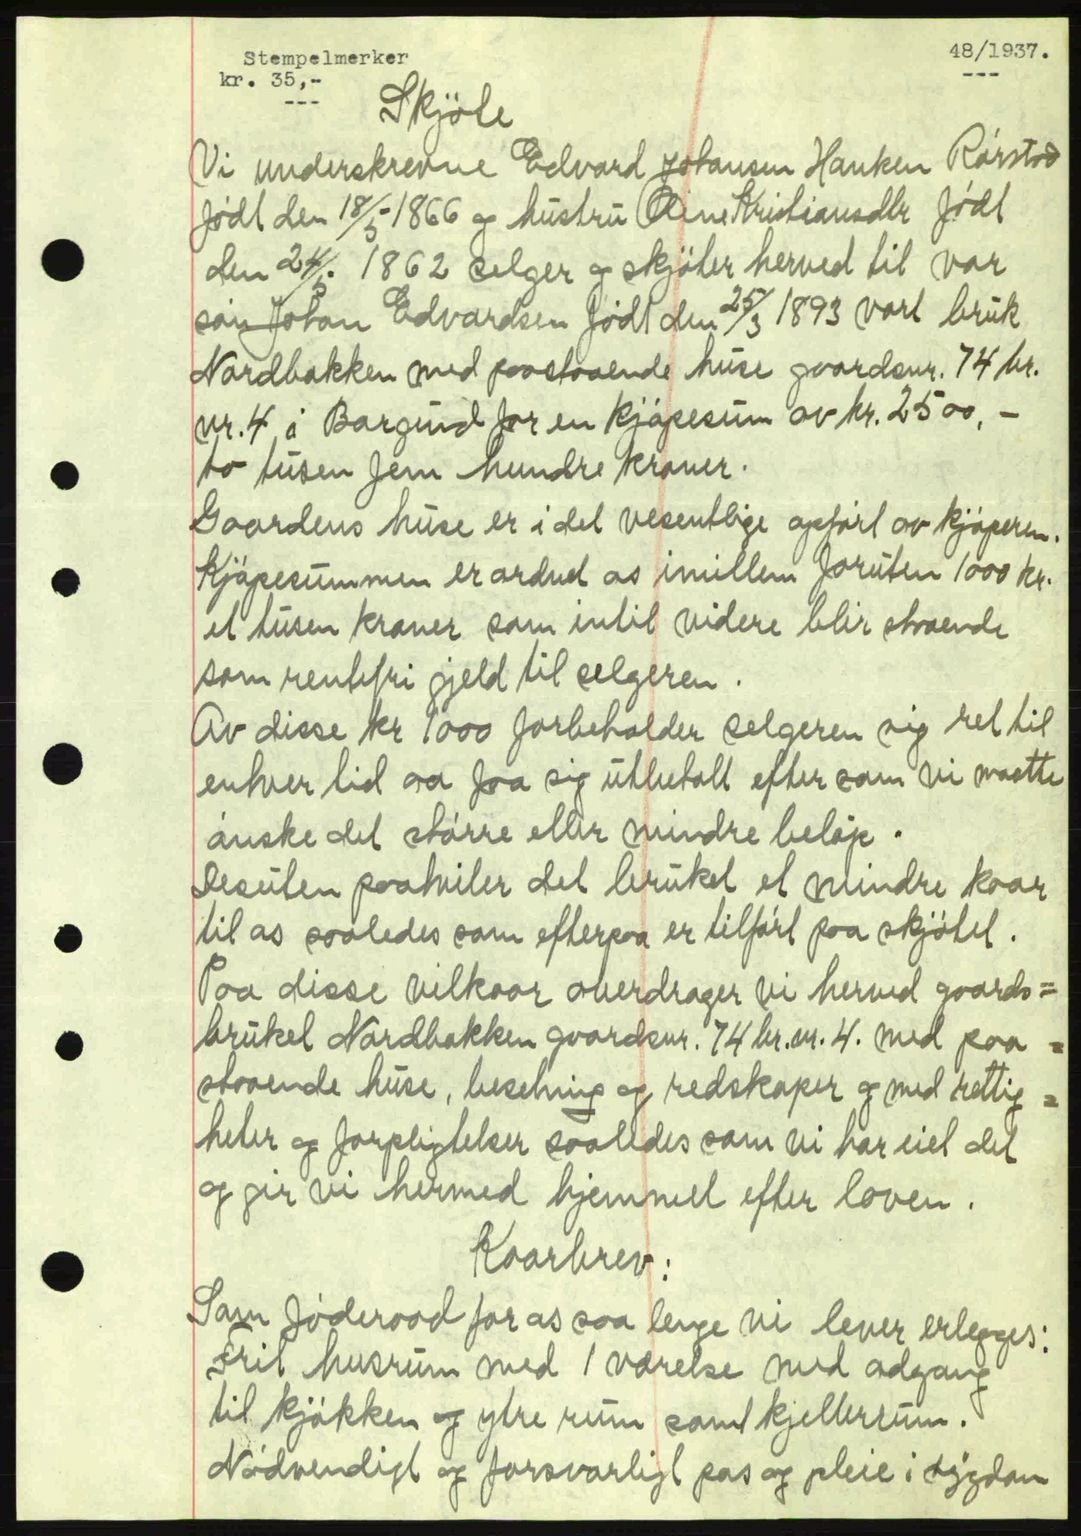 48/1937.
Stempelmerker
kr. 35,-
Skjöte
Vi underskrevne Edvard Johansen Hauken Rörstad
född den 18/5-1866 og hustru Oline Kristiansdtr född
den 24/5 1862 selger og skjöter herved til vor
sön Johan Edvardsen född den 25/3 1893 vort bruk
Nordbakken med paastaaende huse gaardsnr. 74 br.
nr. 4 i Borgund for en kjöpesum av kr. 2500,-
to tusen fem hundre kroner.
Gaardens huse er i det vesentlige opfört av kjöperen.
Kjöpesummen er ordnet os imillem foruten 1000 kr.
et tusen kroner som intil videre blir staaende
som rentefri gjeld til selgeren.
Av disse kr 1000 forbeholder selgeren sig ret til
enhver tid aa faa sig utbetalt efter som vi maatte
önske det större eller mindre belöp.
Desuten paahviler det bruket et mindre kaar
til os saaledes som efterpaa er tilfört paa skjötet.
Paa disse vilkaar overdrager vi herved gaards=
bruket Nordbakken gaardsnr. 74 br. nr. 4. med paa=
staaende huse, besetning og redskaper og med rettig=
heter og forpligtelser saaledes som vi har eiet det
og gir vi hermed hjemmel efter loven.
Kaarbrev:
Som föderaad for os saa lenge vi lever erlegges:
Frit husrum med 1 værelse med adgang
til kjökken og ytre rum samt kjellerrum.
Nödvendigt og forsvarligt pas og pleie i sygdom